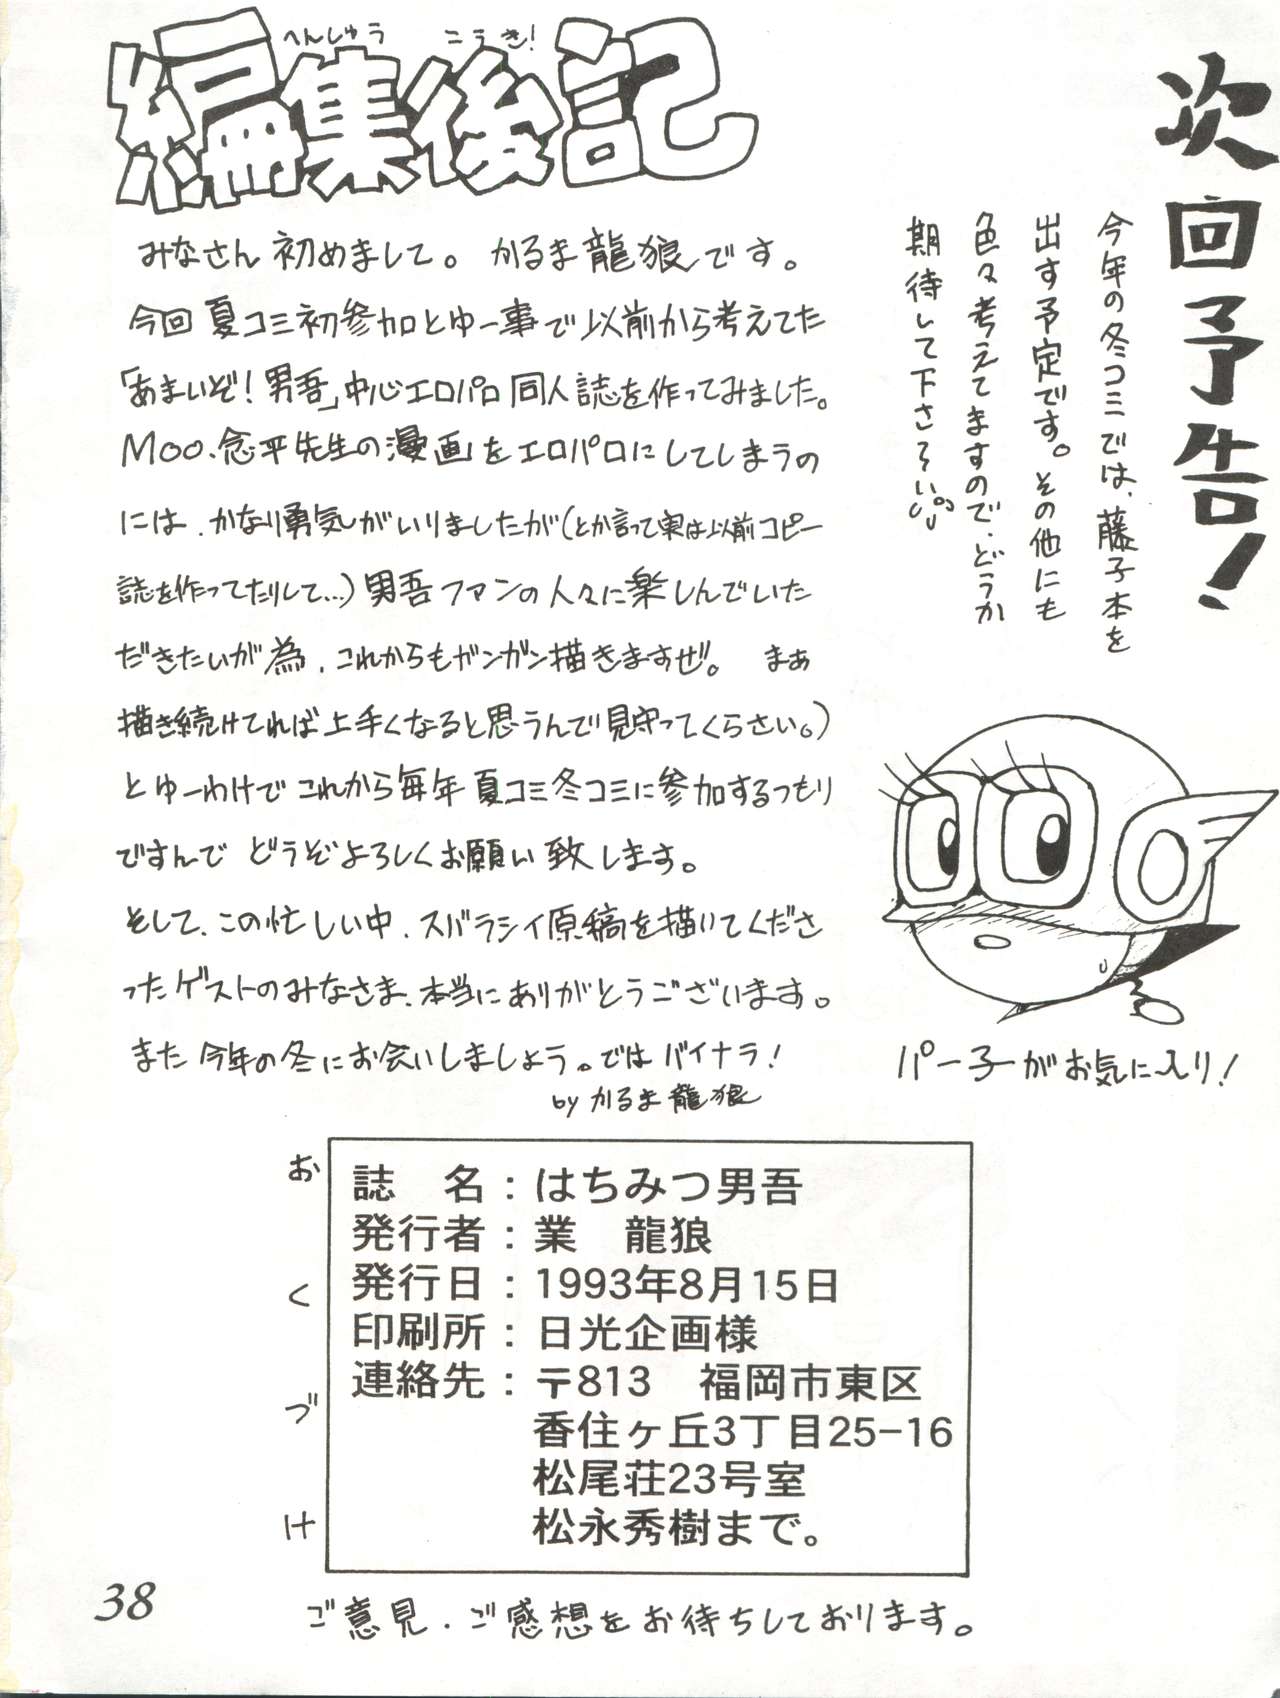 へんしゅう こうき!
編集後記
みなさん初めまして。かるま龍狼です。
今回夏コミ初参加とゆー事で以前から考えてた
「あまいぞ!男吾」中心エロパロ同人誌を作ってみました。
Moo.念平先生の漫画をエロパロにしてしまうの
には、かなり勇気がいりましたが(とか言って実は以前コピー
誌を作ってたりして…)男吾ファンの人々に楽しんでいた
だきたいが為、これからもガンガン描きますぜ。 まぁ
描き続けてれば上手くなると思うんで見守ってくらさい。)
とゆーわけでこれから毎年夏コミ冬コミに参加するつもり
ですんでどうぞよろしくお願い致します。
そして、この忙しい中、スバラシイ原稿を描いてくださ
ったゲストのみなさま、本当にありがとうございます。
また今年の冬にお会いしましょう。ではバイナラ!
by かるま龍狼
次回予告!
今年の冬コミでは、藤子本を
出す予定です。その他にも
色々考えてますので、どうか
期待して下さろい
パー子がお気に入り!
おくづけ
誌 名:はちみつ男吾
発行者:業 龍狼
発行日:1993年8月15日
印刷所:日光企画様
連絡先:〒813 福岡市東区
香住ヶ丘3丁目25-16
松尾荘23号室
松永秀樹まで。
ご意見、ご感想をお待ちしております。
38